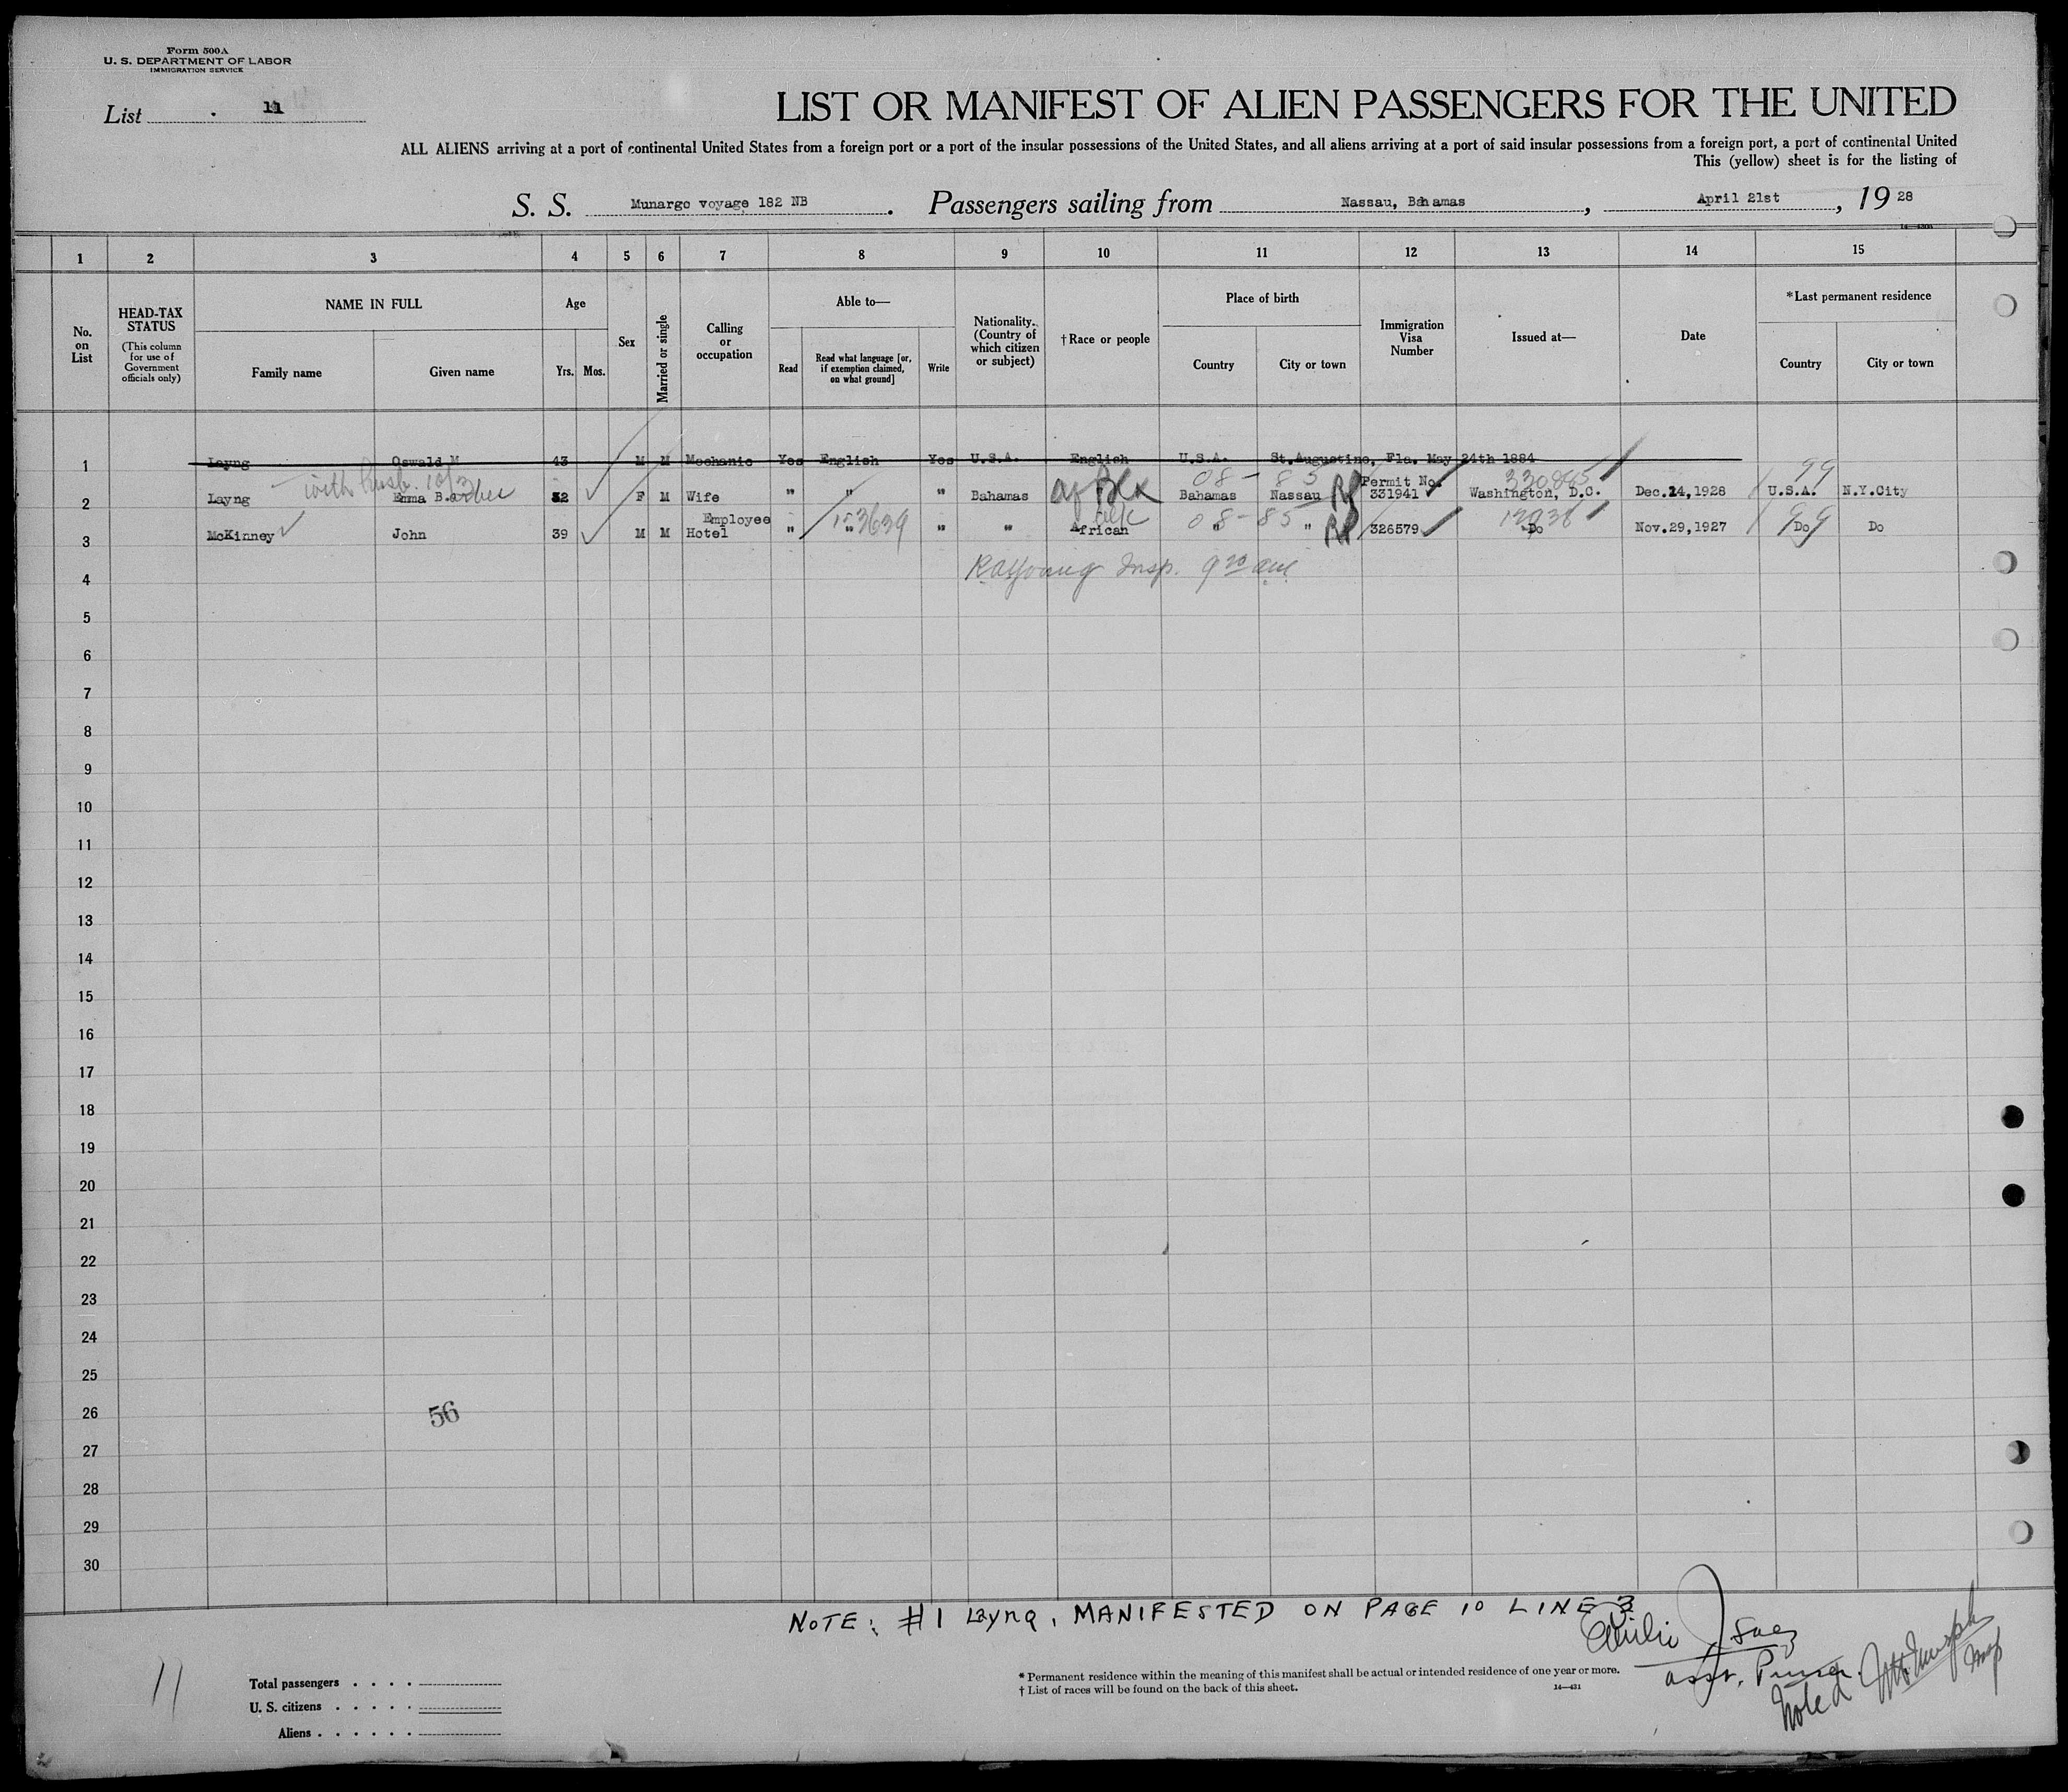 Form 500A
U. S. DEPARTMENT OF LABOR
IMMIGRATION SERVICE
List 11
LIST OR MANIFEST OF ALIEN PASSENGERS FOR THE UNITED
ALL ALIENS arriving at a port of continental United States from a foreign port or a port of the insular possessions of the United States, and all aliens arriving at a port of said insular possessions from a foreign port, a port of continental United
This (yellow) sheet is for the listing of
S. S. Munargo voyage 182 NB. Passengers sailing from Nassau, Bahamas, April 21st, 1928
1 2 3 4 5 6 7 8 9 10 11 12 13 14 15
No. on List
HEAD-TAX STATUS
(This column for use of Government officials only)
NAME IN FULL
Family name
Given name
Age
Yrs. Mos.
Sex
Married or single
Calling or occupation
Able to—
Read
Read what language [or, if exemption claimed, on what ground]
Write
Nationality. (Country of which citizen or subject)
†Race or people
Place of birth
Country
City or town
Immigration Visa Number
Issued at—
Date
*Last permanent residence
Country
City or town
1 Layng Oswald M 43 M M Mechanic Yes English Yes U.S.A. English U.S.A. St.Augustine, Fla. May 24th 1884
with husb. 10/3
08 - 85 330845 99
Permit No.
2 Layng Emma B. 32 F M Wife " " " Bahamas af Blk Bahamas Nassau 331941 Washington, D.C. Dec.24,1928 U.S.A. N.Y.City
Employee 153639 blk 08-85 99
3 McKinney John 39 M M Hotel " " " " African " " 326579 Do Nov.29,1927 Do Do
Insp. 9 20 am
4
5
6
7
8
9
10
11
12
13
14
15
16
17
18
19
20
21
22
23
24
25
26
56
27
28
29
30
NOTE: #1 Layng, MANIFESTED ON PAGE 10 LINE 3
asst. Purser.
Noted
Insp
11
Total passengers . . . .
U. S. citizens . . . . .
Aliens . . . . . .
* Permanent residence within the meaning of this manifest shall be actual or intended residence of one year or more.
† List of races will be found on the back of this sheet.
14—431